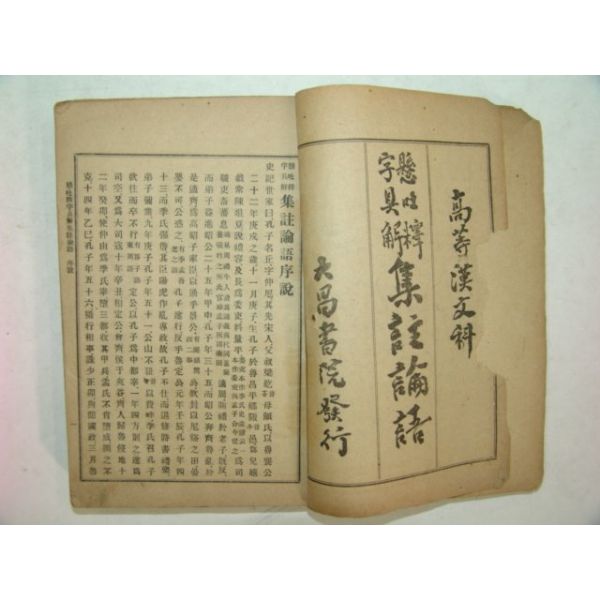 高等漢文科
懸吐釋
字具解
集註論語
大昌書院發行
懸吐釋
字具解
集註論語序說
史記世家曰孔子名丘字仲尼其先宋人父叔梁紇母顏氏以魯襄公
二十二年庚戌之歲十一月庚子生孔子於魯昌平鄉陬邑爲兒嬉
戲常陳俎豆設禮容及長爲委吏料量平
而弟子益進昭公二十五年甲申孔子年三十五而昭公奔齊魯亂於
是適齊爲高昭子家臣以通乎景公
公欲封以尼谿之田晏
嬰不可公惑之
孔子遂行反乎魯定公元年壬辰孔子年四
十三而季氏强僭其臣陽虎作亂專政故孔子不仕而退修詩書禮樂
弟子彌衆九年庚子孔子年五十一公山不狃以費畔季氏召孔子
欲往而卒不行
定公以孔子爲中都宰一年四方則之遂爲
司空又爲大司寇十年辛丑相定公會齊侯于夾谷齊人歸魯侵地十
二年癸卯使仲由爲季氏宰墮三都收其甲兵孟氏不肯墮成圍之不
克十四年乙巳孔子年五十六攝行相事誅少正卯與聞國政三月魯